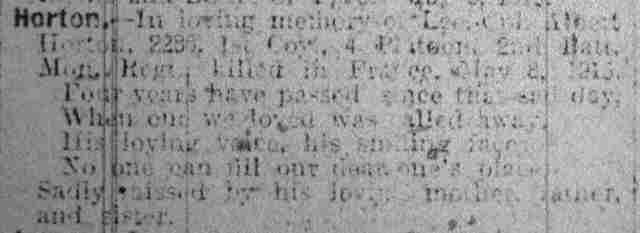 Horton.—In loving memory of Lce.-Cpl. Albert
Horton, 2295, 1st Coy., 4 Platoon, 2nd Batt.
Mon. Regt., killed in France, May 8, 1915.
Four years have passed since that sad day,
When one we loved was called away.
His loving voice, his smiling face
No one can fill our dear one's place.
Sadly missed by his loving mother, father,
and sister.